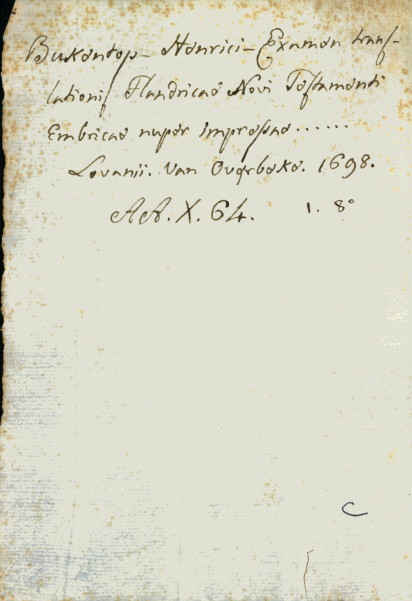 Bukentop - Henrici - Examen trans-
lationis Flandricae Novi Testamenti
Embricae nuper impressae ......
Lovanii. Van Overbeke. 1698.
AA. X. 64. 1. 8°
C